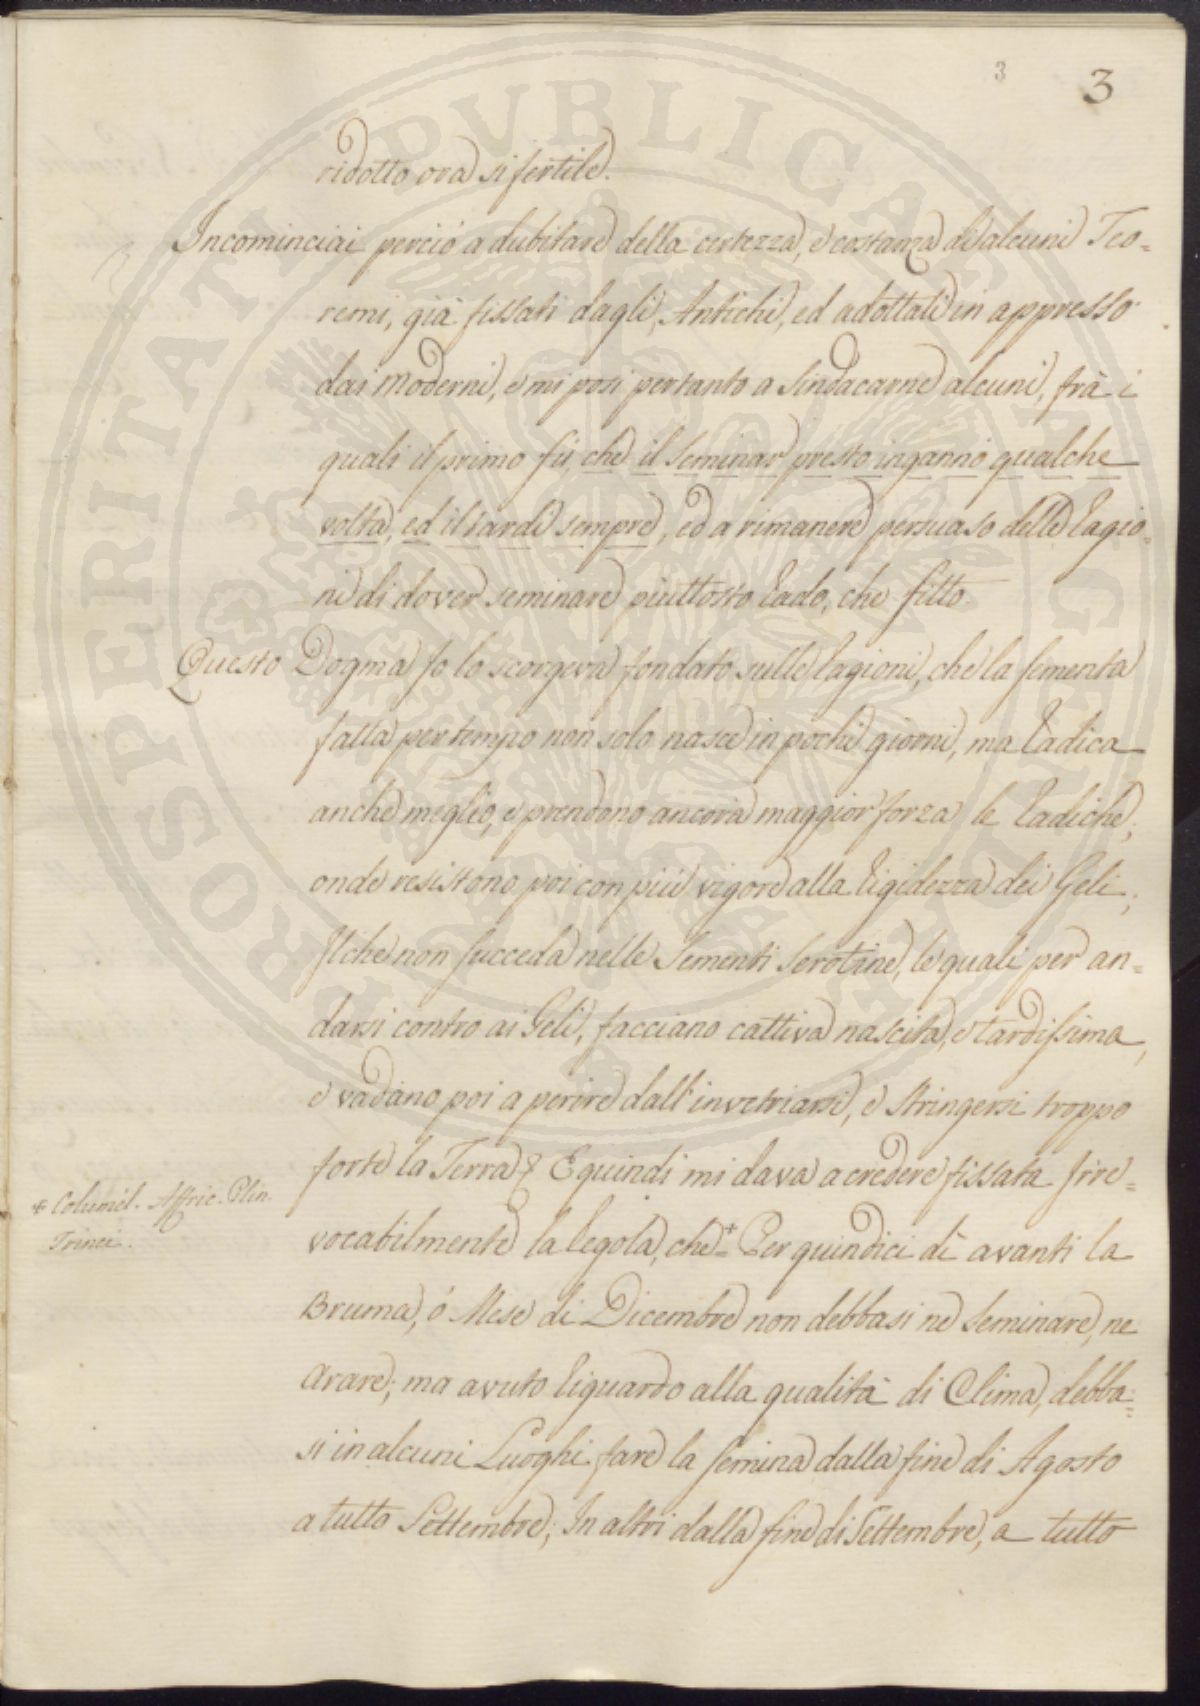 3 3
ridotto ora si fertile.
Incominciai perciò a dubitare della certezza, e costanza di alcuni Teo=
remi, già fissati dagli Antichi, ed adottati in appresso
dai Moderni, e mi posi pertanto a Sindacarne alcuni, frà i
quali il primo fù, che il Seminar presto inganno qualche
volta, ed il tardi sempre, ed a rimanere persuaso delle Ragio=
ni di dover seminare piuttosto Rado, che fitto.
Questo Dogma Io lo scorgeva fondato sulle Ragioni, che la Sementa
fatta per tempo non solo nasce in pochi giorni, ma Radica
anche meglio, e prendono ancora maggior forza le Radiche;
onde resistono poi con più vigore alla Rigidezza dei Geli;
Il che non succeda nelle Sementi Serotine, le quali per an=
darsi contro ai Geli, facciano cattiva nascita, e tardissima,
e vadano poi a perire dall'invetriarsi, e stringersi troppo
forte la Terra; E quindi mi dava a credere fissata Irre=
vocabilmente la Regola, che + = Per quindici dì avanti la
Bruma, ó Mese di Dicembre non debbasi ne Seminare, ne
Arare; ma avuto Riguardo alla qualità di Clima, debba=
si in alcuni Luoghi fare la Semina dalla fine di Agosto
a tutto Settembre; In altri dalla fine di Settembre, a tutto
+ Columel. Affric. Plin.
Trinci.
PROSPERITATI PVBLICAE AVGENDAE